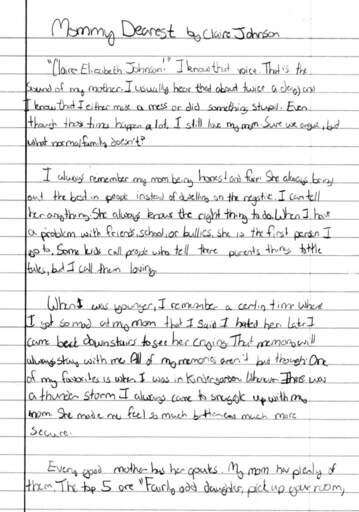 Mommy Dearest by Claire Johnson
"Claire Elizabeth Johnson!" I know that voice. That is the
sound of my mother. I usually hear that about twice a day and
I know that I either made a mess or did something stupid. Even
though those times happen a lot, I still love my mom. Sure we argue, but
what normal family doesn't?
I always remember my mom being honest and fair. She always brings
out the best in people instead of dwelling on the negative. I can tell
her anything. She always knows the right thing to do. When I have
a problem with friends, school, or bullies, she is the first person I
go to. Some kids call people who tell there parents things tattle
tales, but I call them loving.
When I was younger, I remember a certin time where
I got so mad at my mom that I said I hated her. Later I
came back downstairs to see her crying. That memory will
always stay with me. All of my memories aren't bad though. One
of my favorites is when I was in Kindergarden. Whenever There was
a thunder storm I always came to snuggle up with my
mom. She made me feel so much better and much more
secure.
Every good mother has her quotes. My mom has plenty of
them. The top 5 are "Fairly odd daughter, pick up your room,